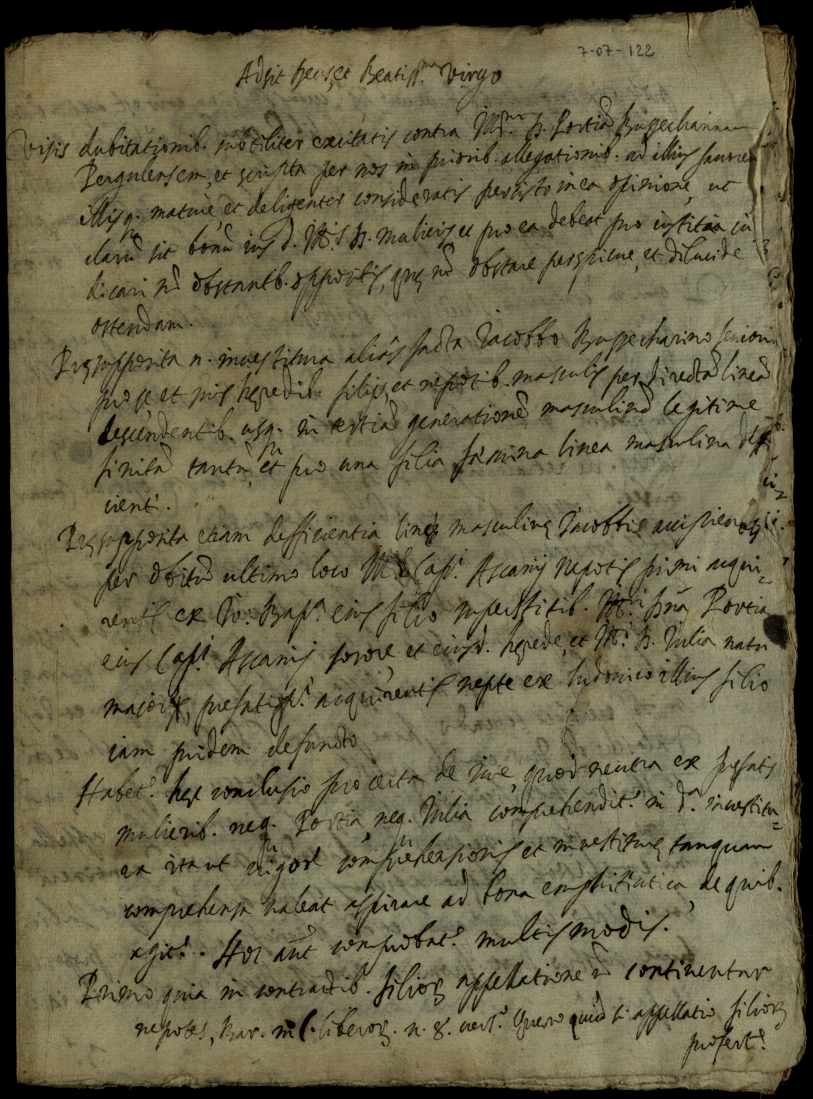 7-07-122
Adsit Deus, et Beatiss.ma Virgo
Visis dubitationib. subtiliter excitatis contra Ill.m D. Portiā
Pergulensem, et scripta per nos in priorib. allegationib. ad illius favorem
illisq. maturè, et deligenter consideratis persisto in ea opinione, ut
clarū sit bonū ius d. Ill.s D. mulieris et pro ea debeat pro iustitia iu
dicari nō obstantib. oppositis, quę nō obstare perspicue, et dilucide
ostendam.
Pręsupposita n. investitura aliàs facta Iacobbo seniori
pro se et suis hęredib. filijs, et nepotib. masculis per directā lineā
descendentib. usq. in tertiā generationē masculinā legitime
finitā tantū, et pro una filia fęmina linea masculina deffi
cienti.
Pręsupposita etiam defficientia linęę masculinę Iacobbi
per obitū ultimo loco Capi. Ascanij Nepotis primi acqui-
rentis ex Io. Bapt.a eius filio superstitib. Ill. Dña Portia
eius Capi. Ascanij sorore et eiusd. hęrede, et Ill. D. Iulia natu
majoris, prefati acquirentis nepte ex Ludovico illius filio
iam pridem defuncto
Habet. hęc conclusio pro certa de iure, quod neutra ex prefatis
mulierib. neq. Portia, neq. Iulia comprehendit. in d.a investitu-
ra ita ut vigore comprehensionis et investiturę tanquam
comprehensa valeat aspirare ad bona emphiteutica, de quib.
agit. Hoc aūt comprobat. multis modis.
Primo quia in contractib. filiorū appellatione nō continentur
nepotes, Bar. in l. liberorū. n. 8. vers. Quero quid si appellatio filiorū
profert.